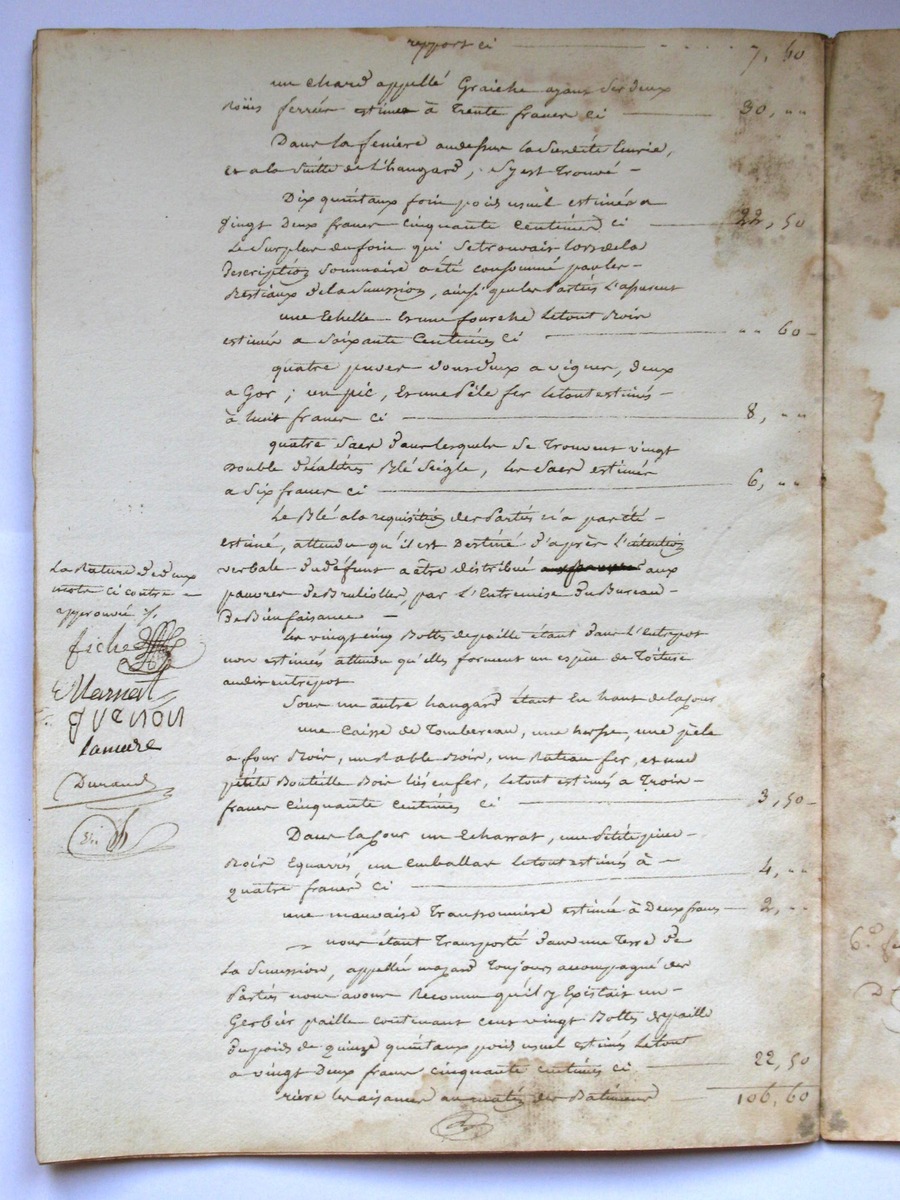 report ci 7, 60
un chard appellé Graiche ayant ses deux
Roües ferrées estimé à Trente francs ci 30, ..
Dans la feniere audessus la Susdite Ecurie,
et a la Suitte de l'hangard, s'y est Trouvé -
Dix quintaux foin poid usuël estimés a
vingt deux francs cinquante Centimes ci 22, 50
Le Surplus du foin qui Se trouvait lors de la
description Sommaire a été consommé par les -
Bestiaux de la Succession, ainsi que les Parties l'assurent
une Echelle Et une fourche le tout Boir
estimé a Soixante Centimes ci .. 60
quatre deux a vigner, deux
a Gor ; un pic, Et une Pèle fer le tout estimés
à huit francs ci 8, ..
quatre Sacs dans lesquels Se Trouvent vingt
Double Décalitres Blé Seigle, les Sacs estimés
a Six francs ci 6, ..
Le Blé a la requisition des Parties n'a pas été -
estimé, attendu qu'il est Destiné d'après L'intention
verbale du défunt a être distribué aux
pauvres de Brulioles, par L'Entremise du Bureau
De Bienfaisance -
Les vingt cinq Bottes de paille étant dans L'Entrepot
non estimés attendu qu'elles forment un espèce de Toiture
audit entrepot
Sous un autre hangard étant En haut de la Cour
une Caisse de Tombereau, une herse, une pèle
a four Boir, un Rable Boir, un Rateau fer, et une
petite Bouteille Boir liés en fer, le tout estimés a Trois
francs cinquante Centimes ci 3, 50
Dans la Cour un Echarrat, une Petite piece
Boir Equarrés, un Emballar le tout estimés à -
quatre francs ci 4, ..
une mauvaise Transonnière estimée à Deux francs 2, ..
nous étant Transporté dans une Terre de
La Succession, appellée mazard Toujours accompagné des
Parties nous avons Reconnu qu'il y Existait un
Gerbier paille contenant cent vingt Bottes de paille
du poids de quinze quintaux poid usuel estimés le tout
a vingt Deux francs cinquante centimes ci 22, 50
rière les aisances au matin des Batiments 106, 60
La Rature de deux
mots ci contre
approuvée
fichet
Marnat
guenon
Lamure
Durand